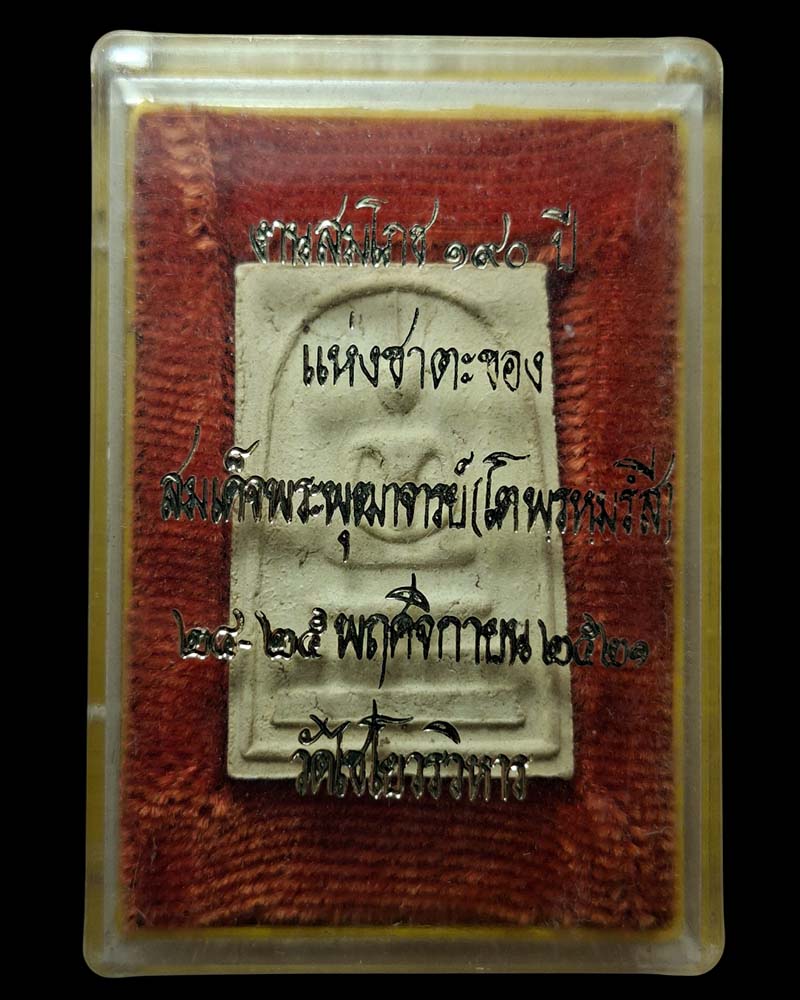 งานสมโภช ๑๙๐ ปี
แห่งชาตะของ
สมเด็จพระพุฒาจารย์(โตพรหมรํสี)
๒๔-๒๕ พฤศจิกายน ๒๕๒๑
วัดไชโยวรวิหาร